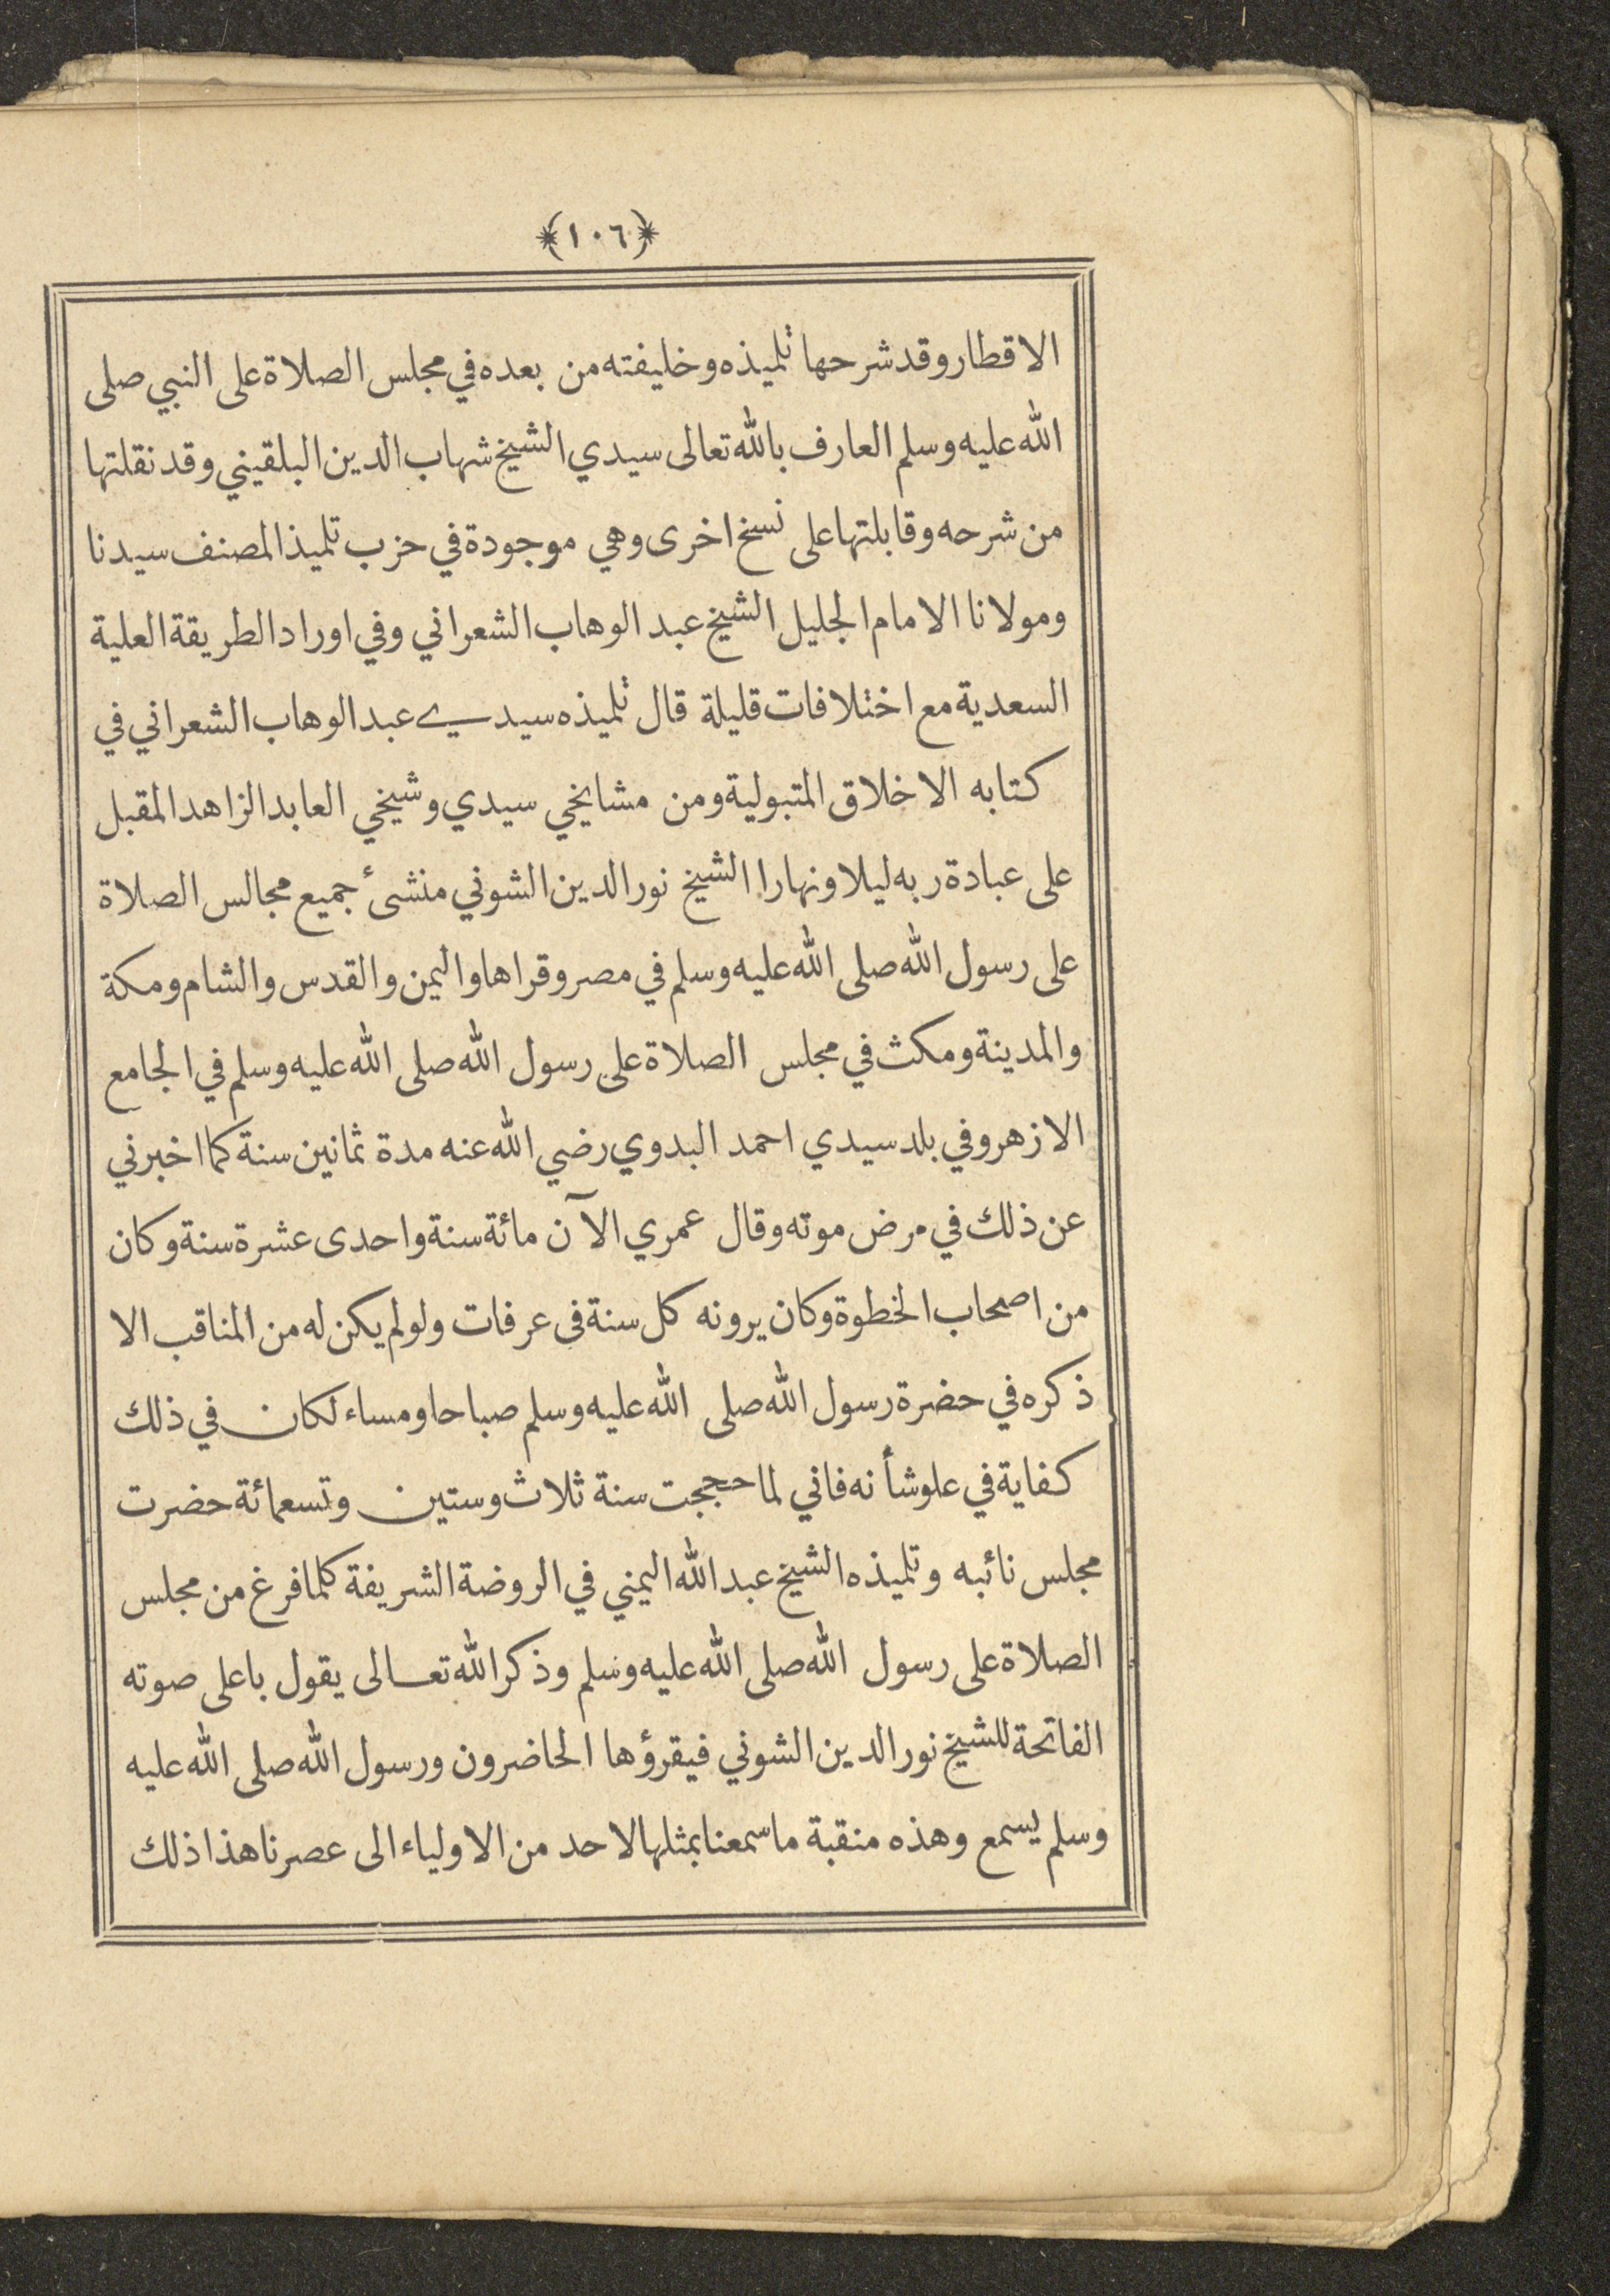 ﴿١٠٦﴾
الاقطار وقد شرحها تلميذه وخليفته من بعده في مجلس الصلاة على النبي صلى
الله عليه وسلم العارف بالله تعالى سيدي الشيخ شهاب الدين البلقيني وقد نقلتها
من شرحه وقابلتها على نسخ اخرى وهي موجودة في حزب تلميذ المصنف سيدنا
ومولانا الامام الجليل الشيخ عبد الوهاب الشعراني وفي اوراد الطريقة العلية
السعدية مع اختلافات قليلة قال تلميذه سيدي عبد الوهاب الشعراني في
كتابه الاخلاق المتبولية ومن مشايخي سيدي وشيخي العابد الزاهد المقبل
على عبادة ربه ليلا ونهارا الشيخ نور الدين الشوني منشئ جميع مجالس الصلاة
على رسول الله صلى الله عليه وسلم في مصر وقراها واليمن والقدس والشام ومكة
والمدينة ومكث في مجلس الصلاة على رسول الله صلى الله عليه وسلم في الجامع
الازهر وفي بلد سيدي احمد البدوي رضي الله عنه مدة ثمانين سنة كما اخبرني
عن ذلك في مرض موته وقال عمري الآن مائة سنة واحدى عشرة سنة وكان
من اصحاب الخطوة وكان يرونه كل سنة فى عرفات ولو لم يكن له من المناقب الا
ذكره في حضرة رسول الله صلى الله عليه وسلم صباحا ومساء لكان في ذلك
كفاية في علو شأنه فاني لما حججت سنة ثلاث وستين وتسعمائة حضرت
مجلس نائبه وتلميذه الشيخ عبد الله اليمني في الروضة الشريفة كلما فرغ من مجلس
الصلاة على رسول الله صلى الله عليه وسلم وذكر الله تعالى يقول باعلى صوته
الفاتحة للشيخ نور الدين الشوني فيقرؤها الحاضرون ورسول الله صلى الله عليه
وسلم يسمع وهذه منقبة ما سمعنا بمثلها لاحد من الاولياء الى عصرنا هذا ذلك